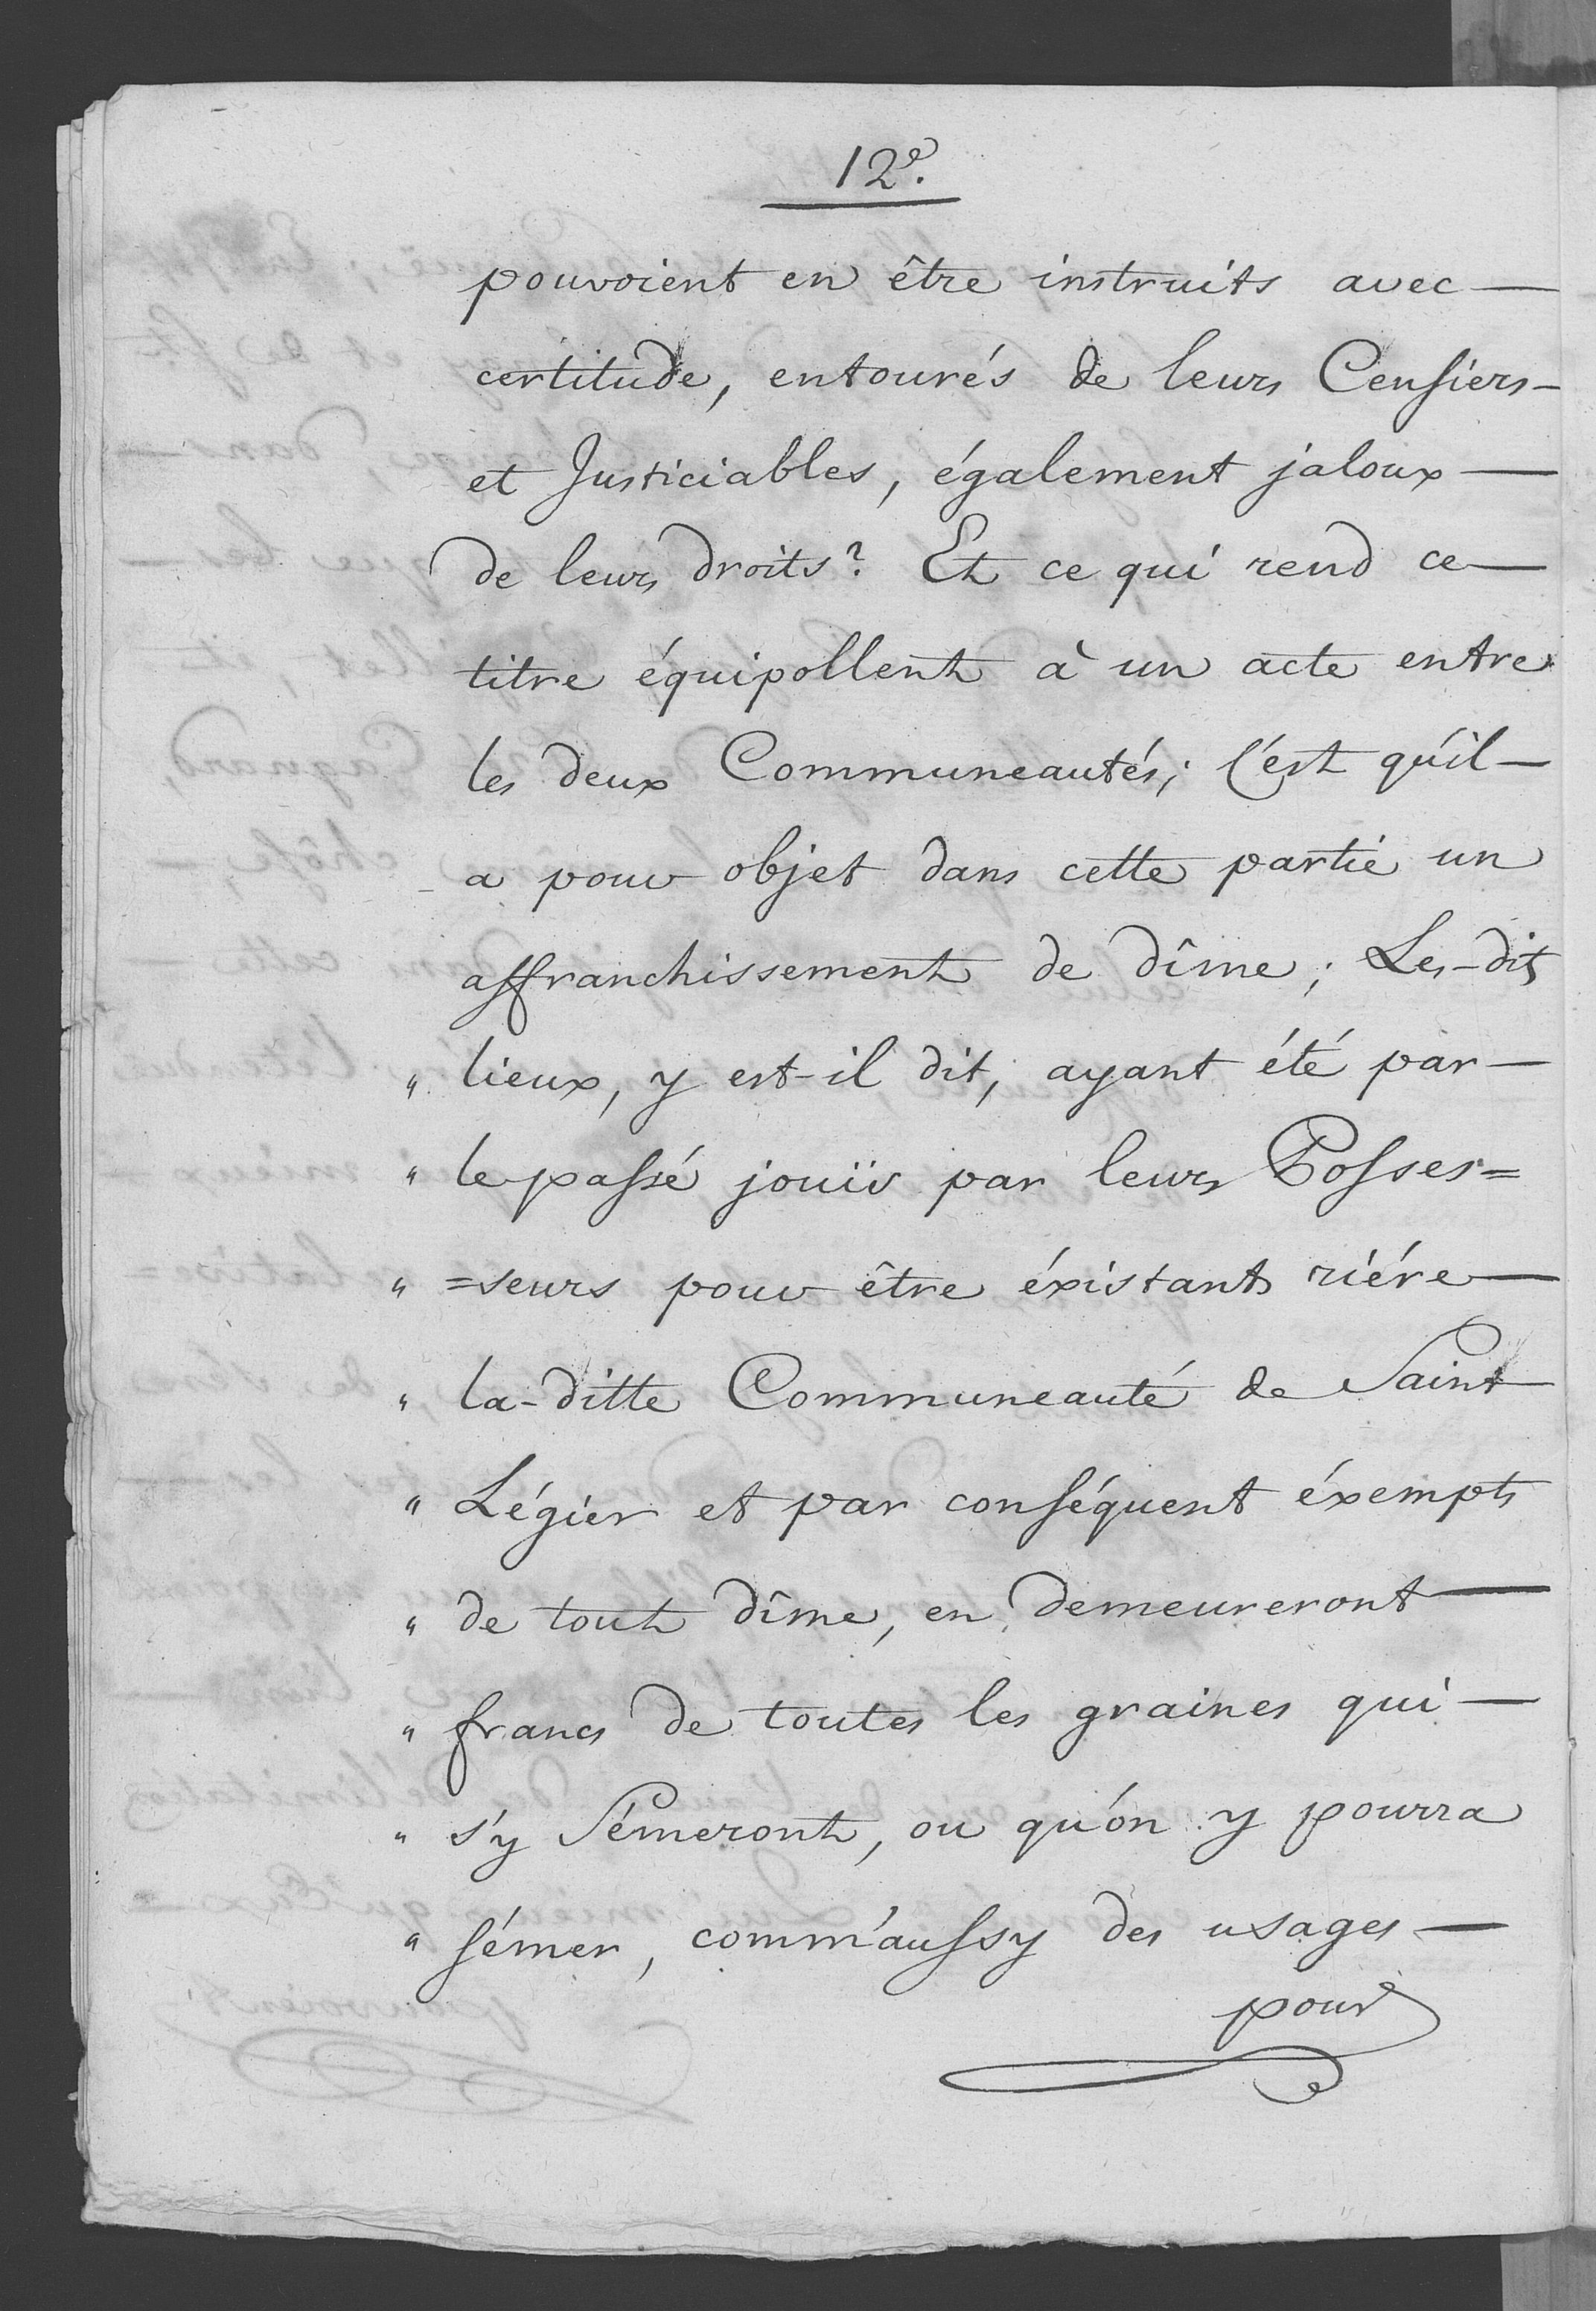 12e.
pouvoient en être instruits avec —
certitude, entourés de leurs Censiers —
et Justiciables, également jaloux —
de leurs droits? Et ce qui rend ce —
titre équipollent à un acte entre
les deux Communeautés; C'est qu'il —
a pour objet dans cette partie un
affranchissement de dîme; Les-dits
" lieux, y est-il dit, ayant été par —
" le passé jouïs par leurs Posses=
" =seurs pour être éxistants riére —
" la-ditte Communeauté de Saint
" Légier et par conséquent éxempts
" de tout dîme, en demeureront —
" francs de toutes les graines qui —
" s'y sémeront, ou qu'on y pourra
" sémer, comm'aussy des usages —
pour